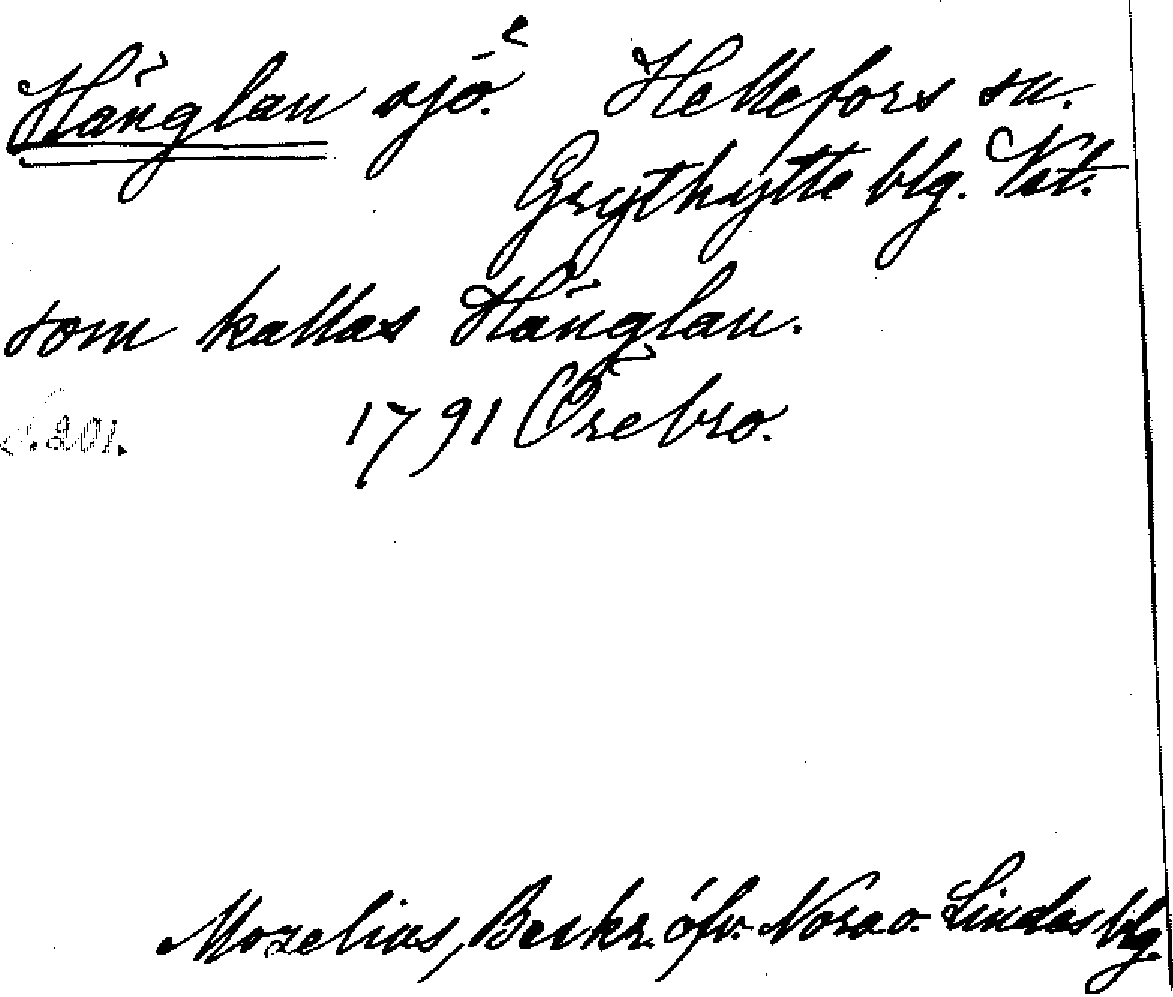 Hänglan sjö. Hellefors sn.
Grythytte blg. Vst.
som kallas Hänglan.
S. 201. 1791 Örebro.
Mozelius, Beskr. öfv. Nora o. Lindes blg.